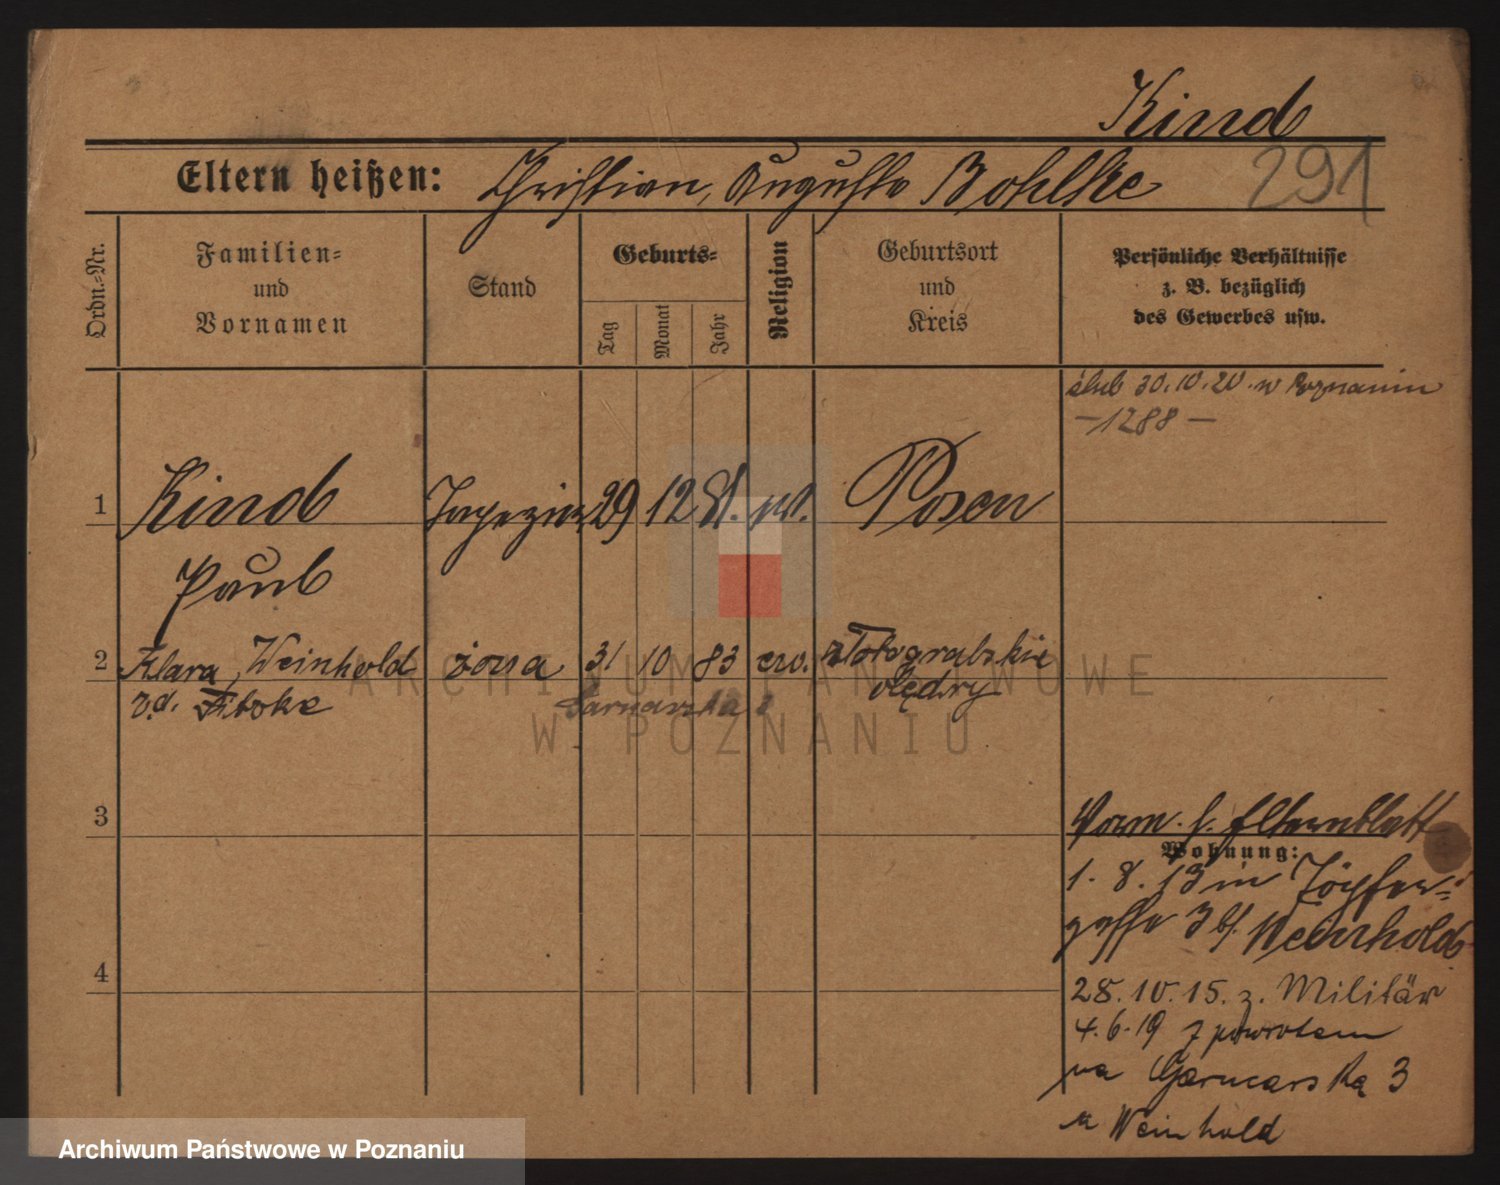 Kind
Eltern heißen: Christian, Auguste Bohlke
291
Ordn.=Nr.
Familien=
und
Vornamen
Stand
Geburts=
Tag
Monat
Jahr
Religion
Geburtsort
und
Kreis
Persönliche Verhältnisse
z. B. bezüglich
des Gewerbes usw.
ślub 30.10.20. w Poznaniu
– 1288 –
1 Kind Tapezier 29 12 81. pr. Posen
Paul
2 Klara, Weinhold żona 31 10 83 ew. Olędry
z.d.
Garnarska 3
3
Vorm. s. Elternblatt
Wohnung:
1. 8. 13 in Töpfer=
gasse 3 b/ Weinhold
4
28.10.15. z. Militär
4.6.19 z powrotem
na Garncarską 3
u Weinhold
ARCHIWUM PAŃSTWOWE
W POZNANIU
Archiwum Państwowe w Poznaniu